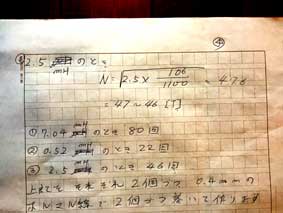 ④
① 2.5 mH のとき
N = √2.5 × 10⁶/1100 ≒ 47.6
= 47~46 [T]
① 7.04 mH のとき 80回
② 0.52 mH のとき 22回
③ 2.5 mH のとき 46回
上記を それぞれ 2個づつ 0.4mmの
線 2個づつ巻いて作ります